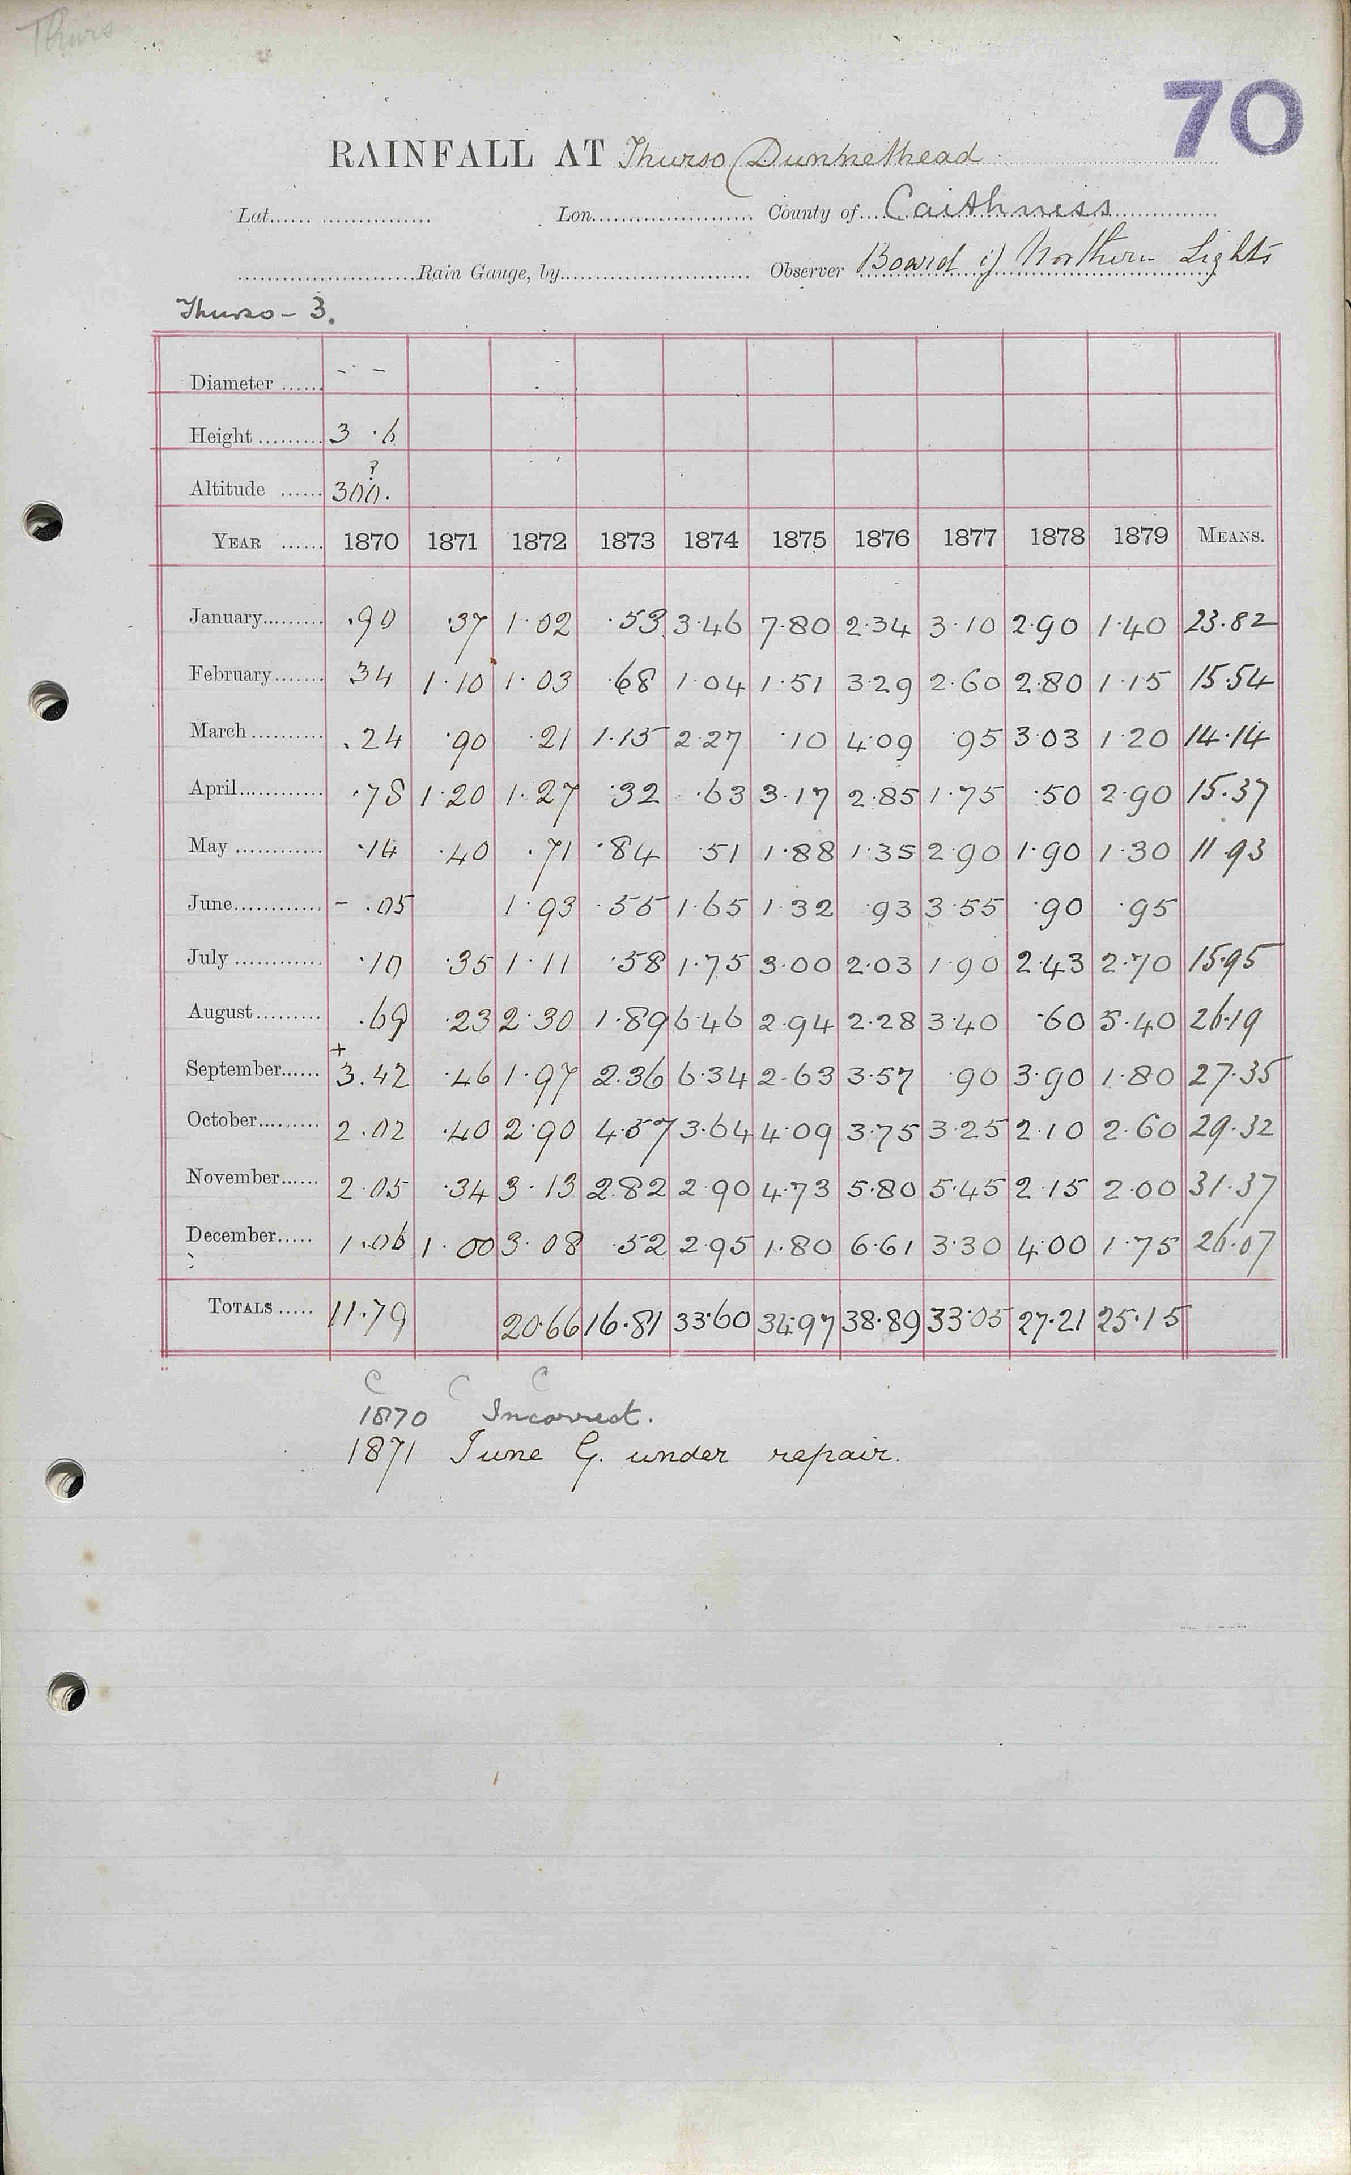 Thurs
70
RAINFALL AT Thurso (Dunnethead
Lat. Lon. County of Caithness
Rain Gauge, by Observer Board of Northern Lights
Thurso - 3.
Diameter - -
Height 3 .6
Altitude 300. ?
YEAR 1870 1871 1872 1873 1874 1875 1876 1877 1878 1879 MEANS.
January .90 .37 1.02 .53 3.46 7.80 2.34 3.10 2.90 1.40 23.82
February 34 1.10 1.03 .68 1.04 1.51 3.29 2.60 2.80 1.15 15.54
March .24 .90 .21 1.15 2.27 .10 4.09 .95 3.03 1.20 14.14
April .78 1.20 1.27 .32 .63 3.17 2.85 1.75 .50 2.90 15.37
May .14 .40 .71 .84 .51 1.88 1.35 2.90 1.90 1.30 11.93
June - .05 1.93 .55 1.65 1.32 .93 3.55 .90 .95
July .10 .35 1.11 .58 1.75 3.00 2.03 1.90 2.43 2.70 15.95
August .69 .23 2.30 1.89 6.46 2.94 2.28 3.40 .60 5.40 26.19
September + 3.42 .46 1.97 2.36 6.34 2.63 3.57 .90 3.90 1.80 27.35
October 2.02 .40 2.90 4.57 3.64 4.09 3.75 3.25 2.10 2.60 29.32
November 2.05 .34 3.13 2.82 2.90 4.73 5.80 5.45 2.15 2.00 31.37
December 1.06 1.00 3.08 .52 2.95 1.80 6.61 3.30 4.00 1.75 26.07
TOTALS 11.79 20.66 16.81 33.60 34.97 38.89 33.05 27.21 25.15
C C C
1870 Incorrect.
1871 June G. under repair.